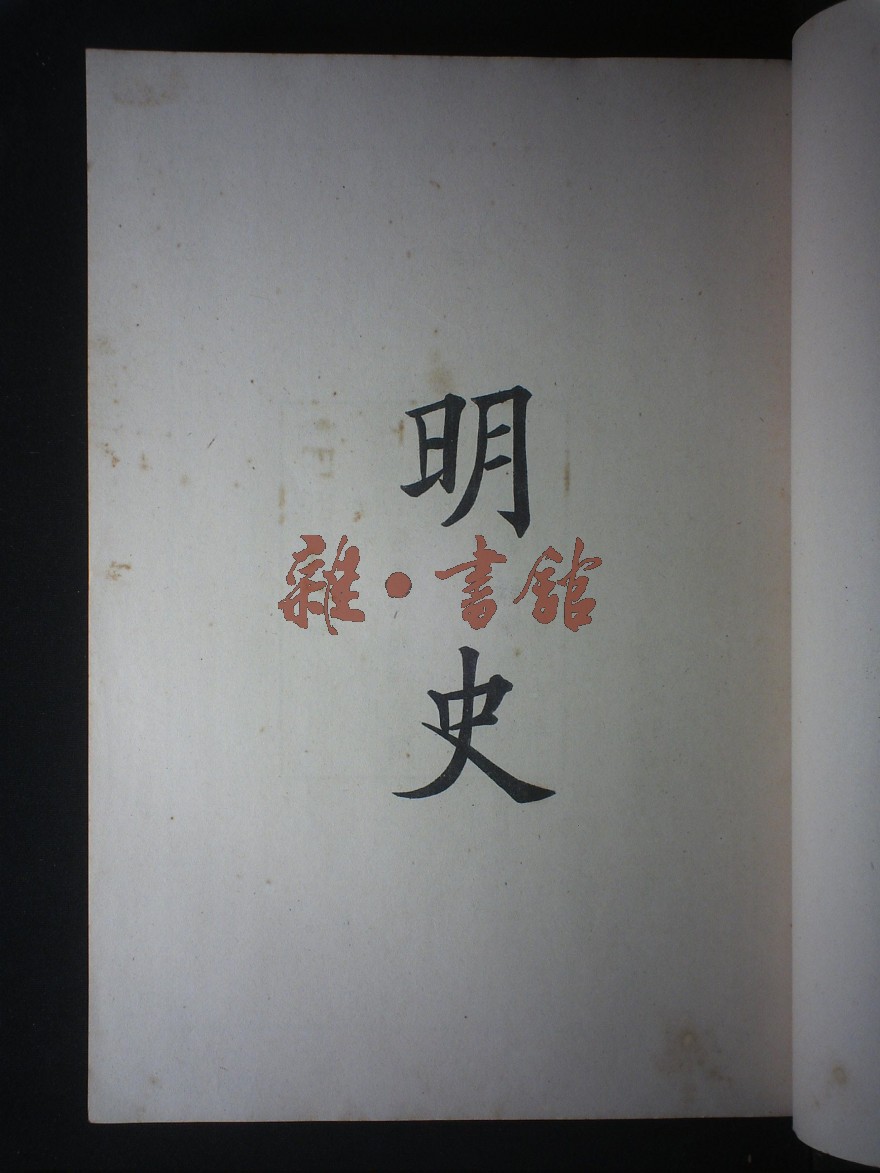 明史
雜·書館